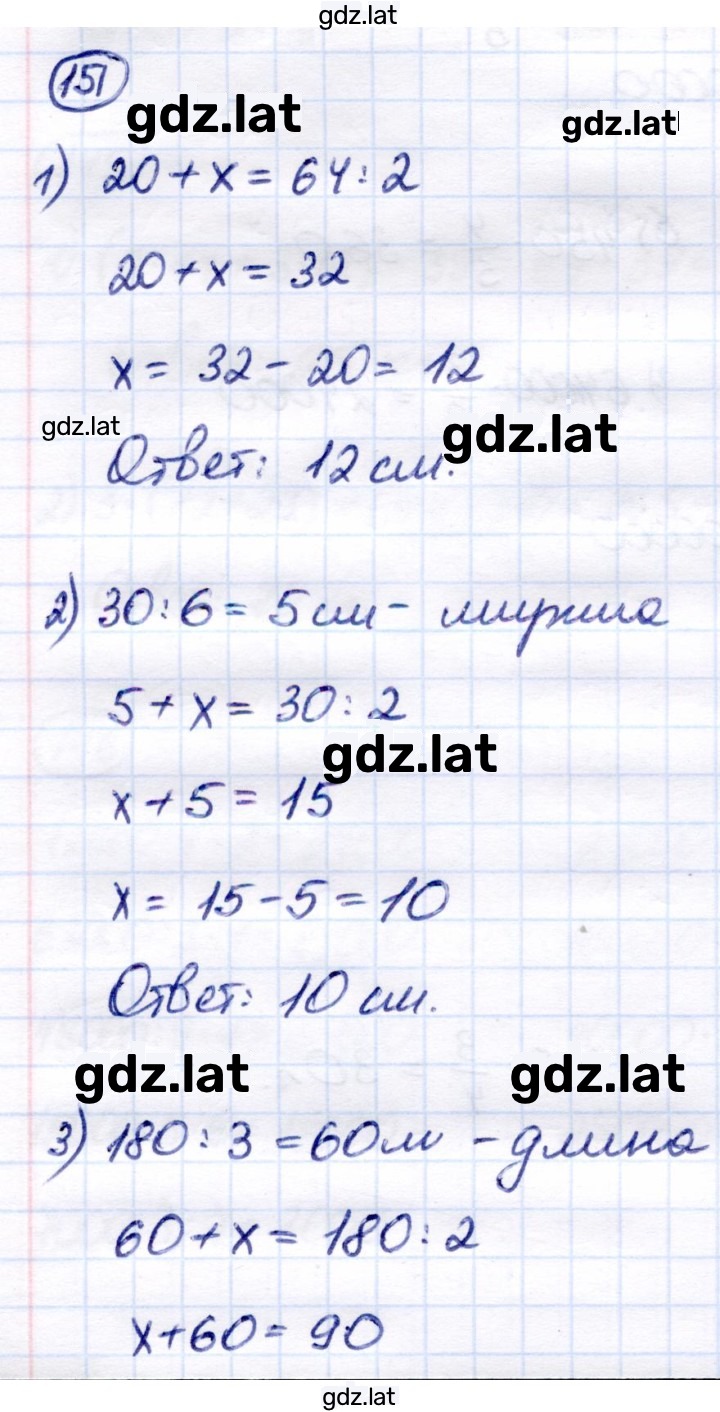 gdz.lat
151
gdz.lat
gdz.lat
1) 20 + x = 64 : 2
20 + x = 32
x = 32 - 20 = 12
gdz.lat
gdz.lat
Ответ: 12 см.
2) 30 : 6 = 5 см - ширина
5 + x = 30 : 2
gdz.lat
x + 5 = 15
x = 15 - 5 = 10
Ответ: 10 см.
gdz.lat
gdz.lat
3) 180 : 3 = 60 м - длина
60 + x = 180 : 2
x + 60 = 90
gdz.lat